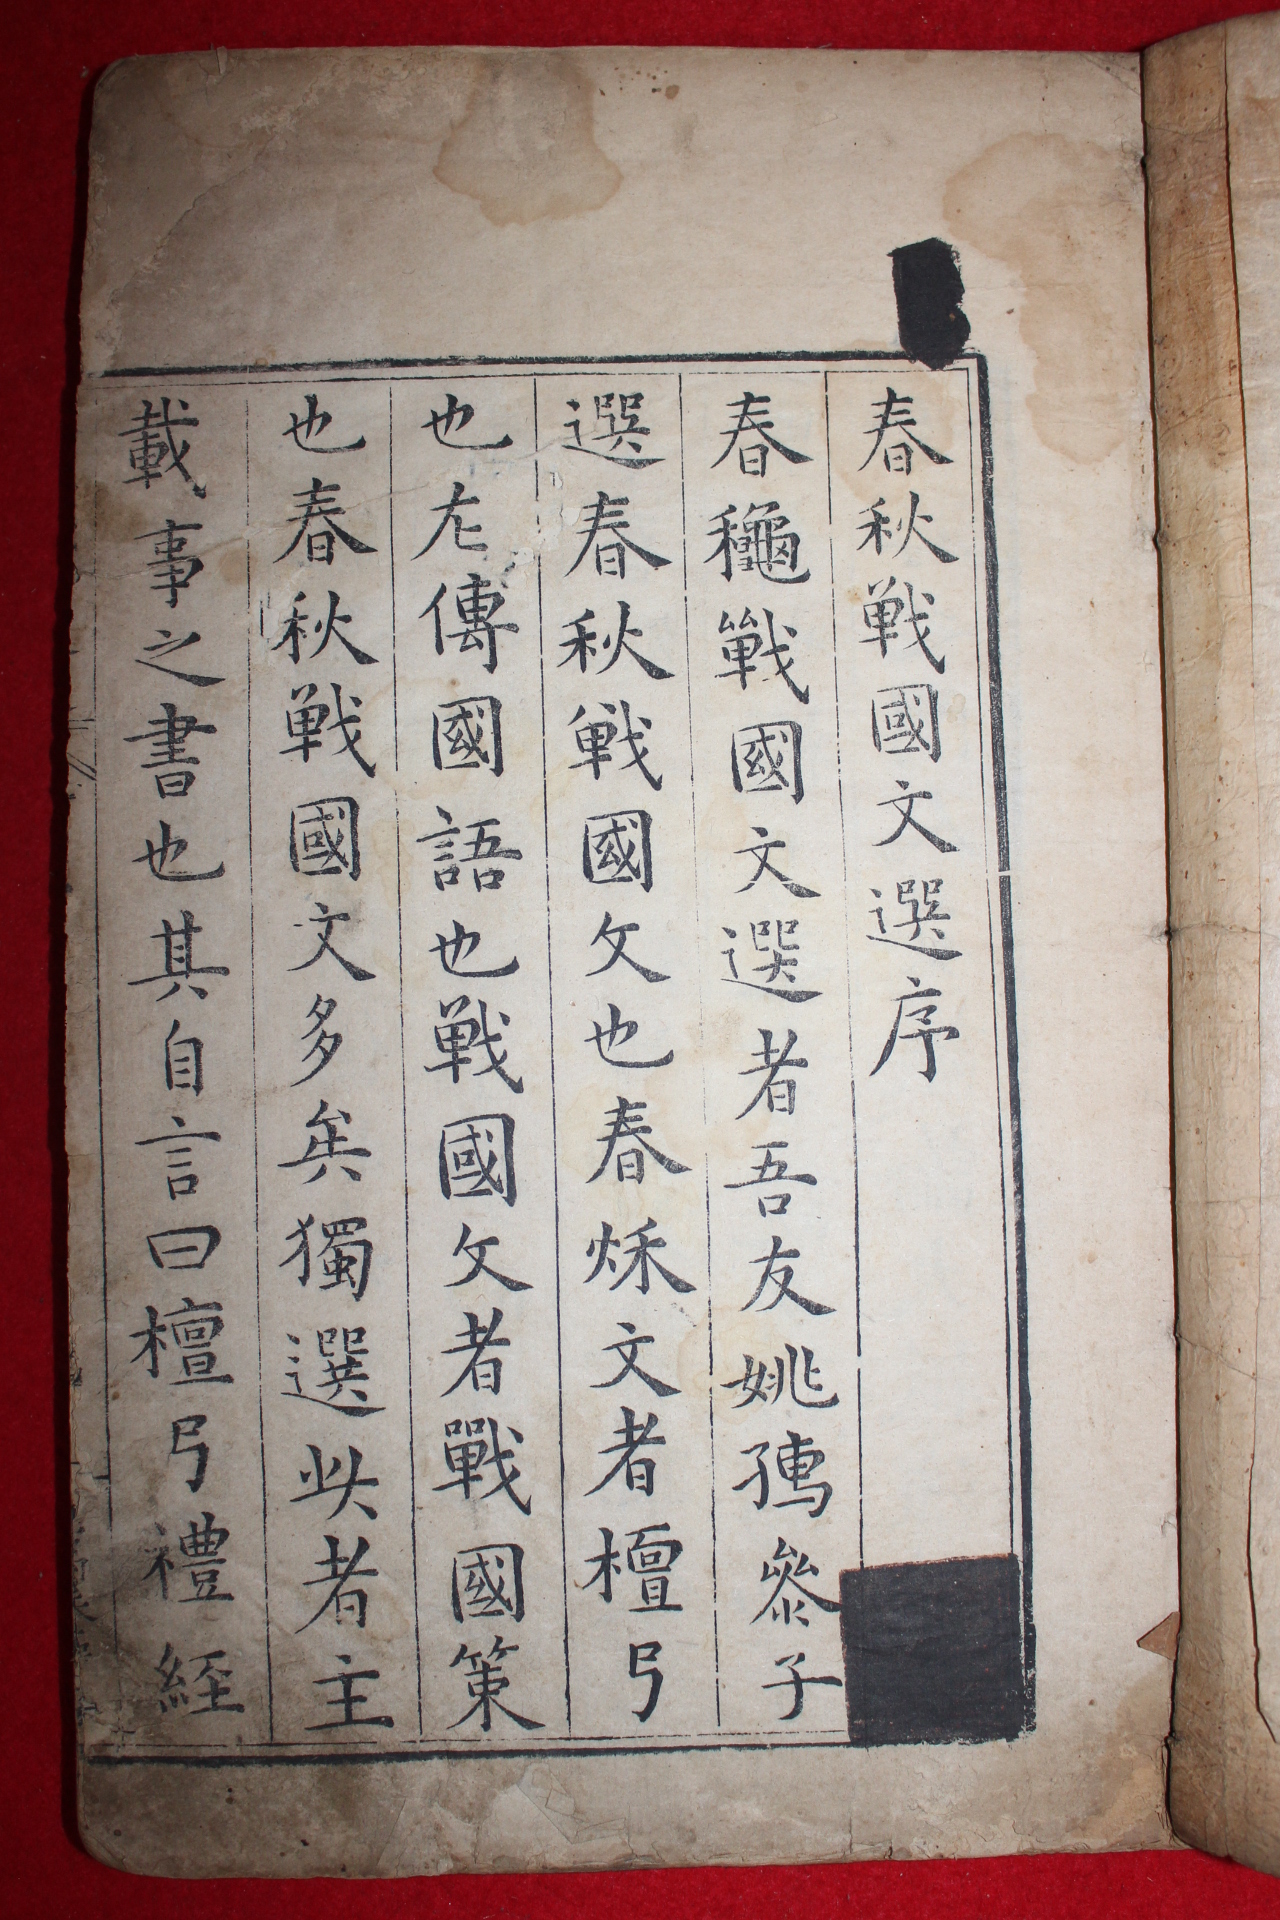 春秋戦國文選序
春龝戰國文選者吾友姚鴅叅子
選春秋戰國文也春秌文者檀弓
也左傳國語也戰國文者戰國策
也春秋戰國文多矣獨選此者主
載事之書也其自言曰檀弓禮經